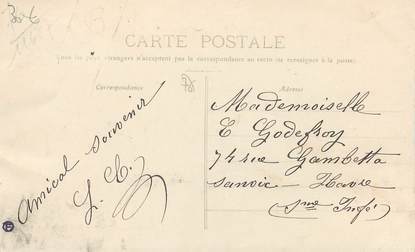 30€
CARTE POSTALE
(Tous les pays étrangers n'acceptent pas la correspondance au recto (se renseigner à la poste).
Correspondance
Adresse
Amical souvenir
Mademoiselle
E Godefroy
74 rue Gambetta
sanvic - Havre
Sne Infé